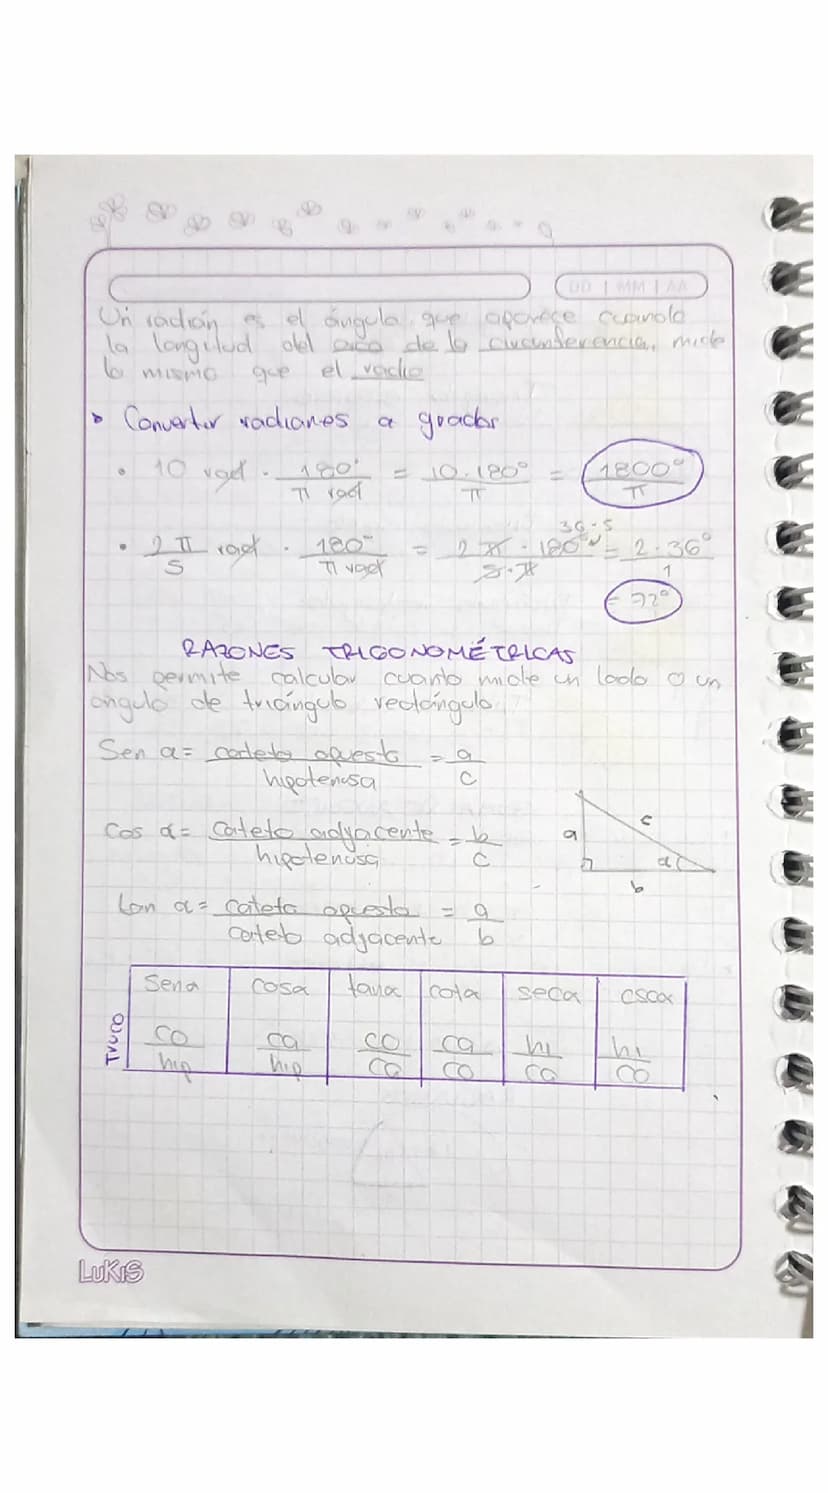 DD | MM | AA
Un radián es el ángulo que aparece cuando
la longitud del arco de la circunferencia, mide
lo mismo que el radio
Convertir radianes a grados
• 10 rad · 180° / π rad = 10·180° / π = 1800° / π
36·5
• 2π / 5 rad · 180° / π rad = 2π·180° / 5·π = 2·36° / 1
= 72°
RAZONES TRIGONOMÉTRICAS
Nos permite calcular cuanto mide un lado o un
angulo de triángulo rectángulo.
Sen α = cateto opuesto / hipotenusa = a / c
Cos α = cateto adyacente / hipotenusa = b / c
tan α = cateto opuesto / cateto adyacente = a / b
a c α b
Truco
senα cosα tanα cotα secα cscα
co/hip ca/hip co/ca ca/co hi/ca hi/co
LUKIS